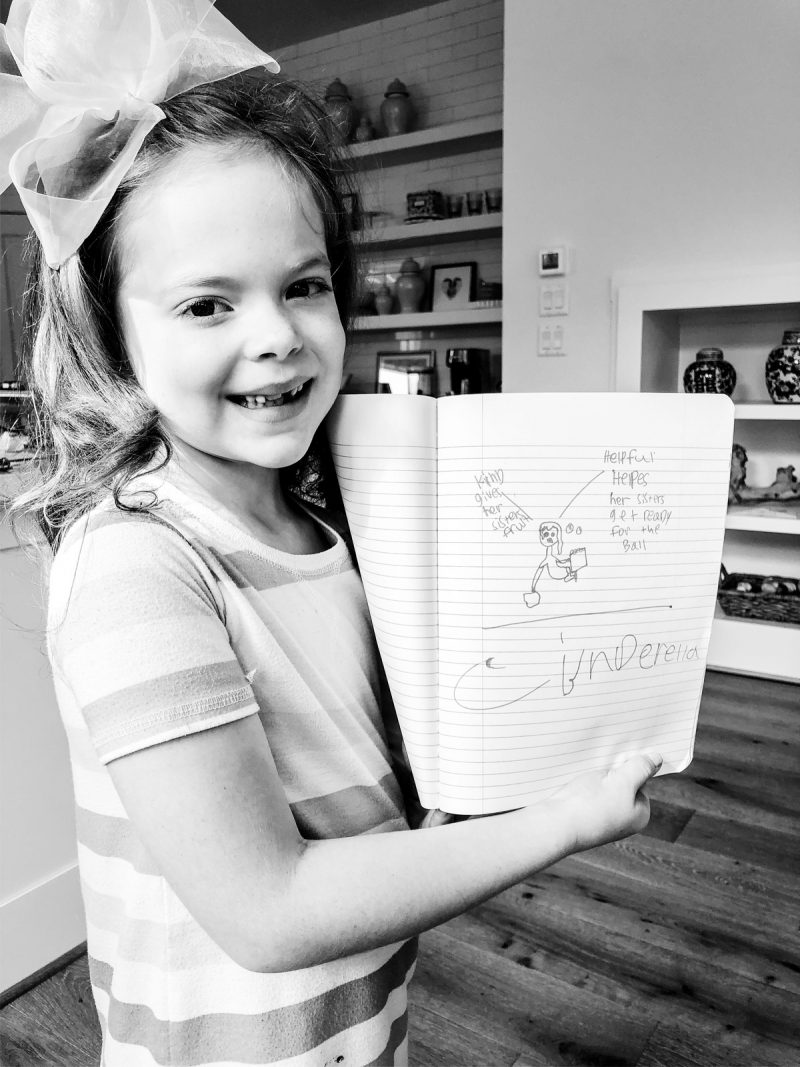 kind
gives
her
sisters
fruit
Helpful
Helpes
her sisters
get ready
for the
Ball
Cinderella